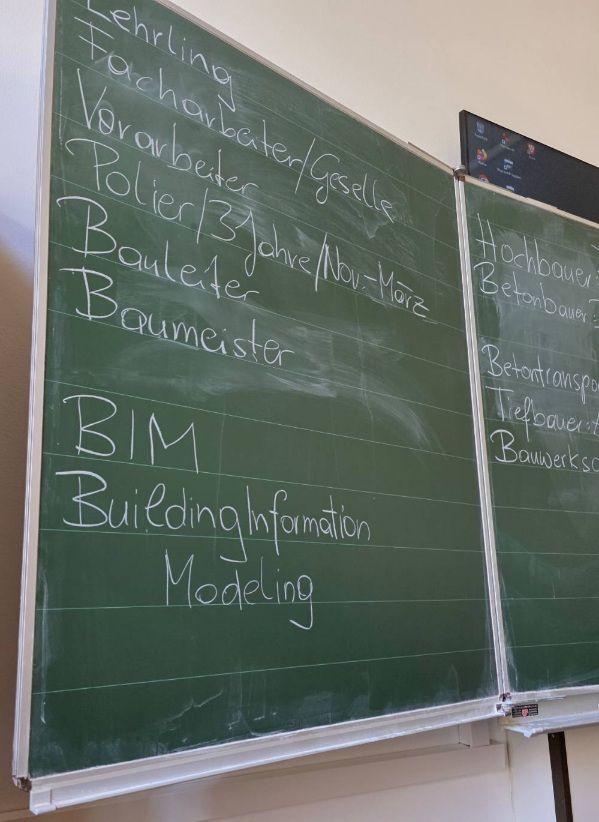 Lehrling
Facharbeiter/Geselle
Vorarbeiter
Polier/3 Jahre/Nov.-März
Bauleiter
Baumeister
BIM
Building Information
Modeling
Hochbauer:
Betonbauer:
Betontranspo
Tiefbauer:
Bauwerksa